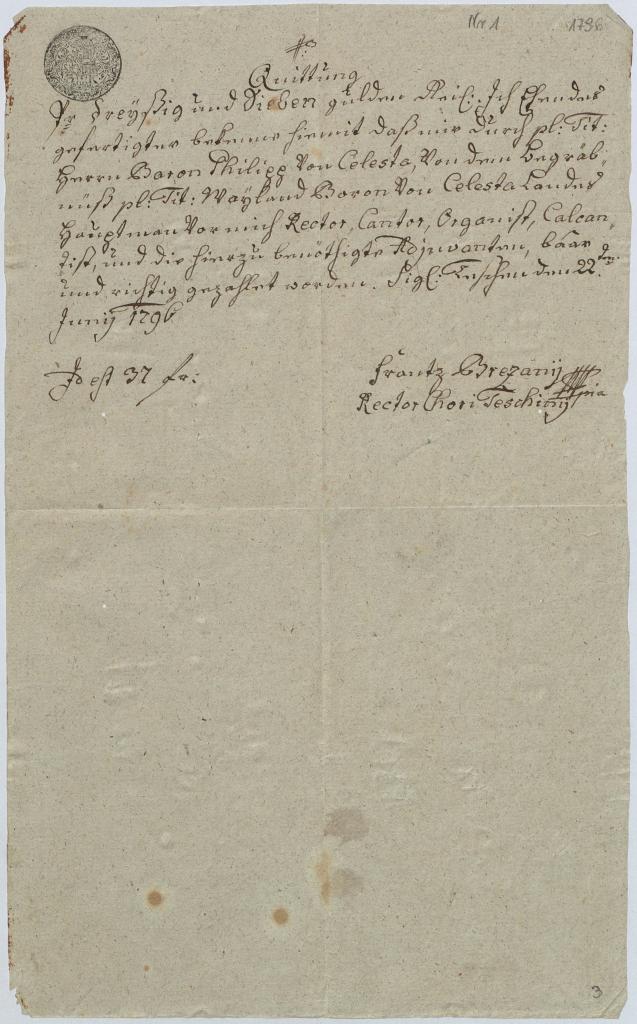 Nr 1 1796
Quittung
Pr Dreyßig und Sieben gulden Reil: Ich Endes
gefertigter bekenne hiemit daß mir durch pl: Tit:
Herrn Baron Philipp Von Celesta, Von dem Begräb-
nuß pl: Tit: Wayland Baron Von Celesta Landes
Hauptman Vor mich Rector, Cantor, Organist, Calcan-
tist, und die hierzu benöthigte Adjuvanten, baar
und richtig gezahlet worden. Sigl: Teschen den 22ten
Junij 1796
Id est 37 fr:
Frantz Brezanij
Rector Chori Teschinij mpia
3